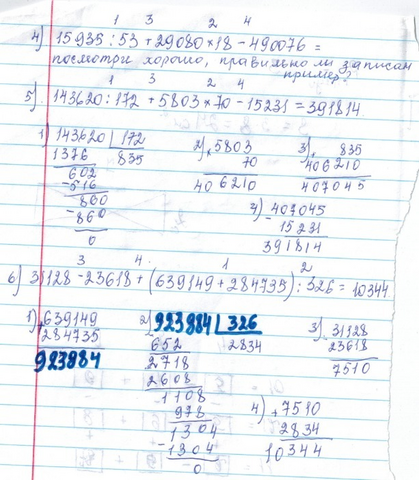 1 3 2 4
4) 15935 : 53 + 29080 × 18 - 490076 =
посмотри хорошо, правильно ли записан
пример?
1 3 2 4
5) 143620 : 172 + 5803 × 70 - 15231 = 391814
1) 143620 | 172 2) × 5803 3) + 835
1376 835 70 406210
602 406210 407045
- 516 4) - 407045
860 15231
- 860 391814
0
3 4 1 2
6) 31128 - 23618 + (639149 + 284735) : 326 = 10344
1) + 639149 2) 923884 | 326 3) - 31128
284735 652 2834 23618
923884 2718 7510
2608
1108 4) + 7510
978 2834
1304 10344
- 1304
0